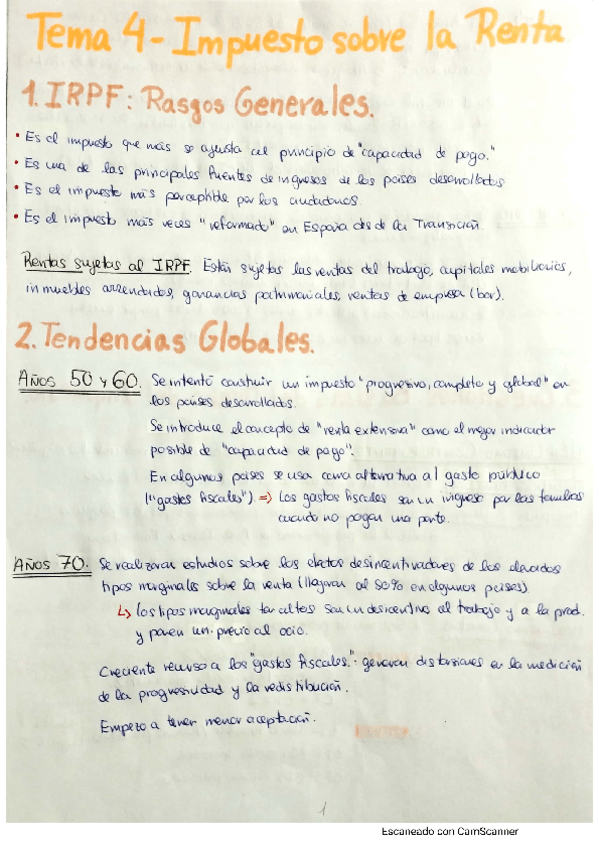 Tema 4 - Impuesto sobre la Renta
1. IRPF: Rasgos Generales.
• Es el impuesto que más se ajusta al principio de "capacidad de pago."
• Es una de las principales fuentes de ingresos de los países desarrollados
• Es el impuesto más perceptible por los ciudadanos.
• Es el impuesto más veces "reformado" en España desde la Transición.
Rentas sujetas al IRPF. Están sujetas las rentas del trabajo, capitales mobiliarios,
inmuebles arrendados, ganancias patrimoniales, rentas de empresa (bar).
2. Tendencias Globales.
AÑOS 50 y 60. Se intentó construir un impuesto "progresivo, completo y global" en
los países desarrollados.
Se introduce el concepto de "renta extensiva" como el mejor indicador
posible de "capacidad de pago".
En algunos países se usa como alternativa al gasto público
("gastos fiscales") => Los gastos fiscales son un ingreso por las familias
cuando no pagan una parte.
AÑOS 70. Se realizaron estudios sobre los efectos desincentivadores de los elevados
tipos marginales sobre la renta (llegaron al 90% en algunos países)
↳ los tipos marginales tan altos son un desincentivo al trabajo y a la prod.
y ponen un precio al ocio.
Creciente recurso a los "gastos fiscales": generaron distorsiones en la medición
de la progresividad y la redistribución.
Empezó a tener menor aceptación.
1
Escaneado con CamScanner